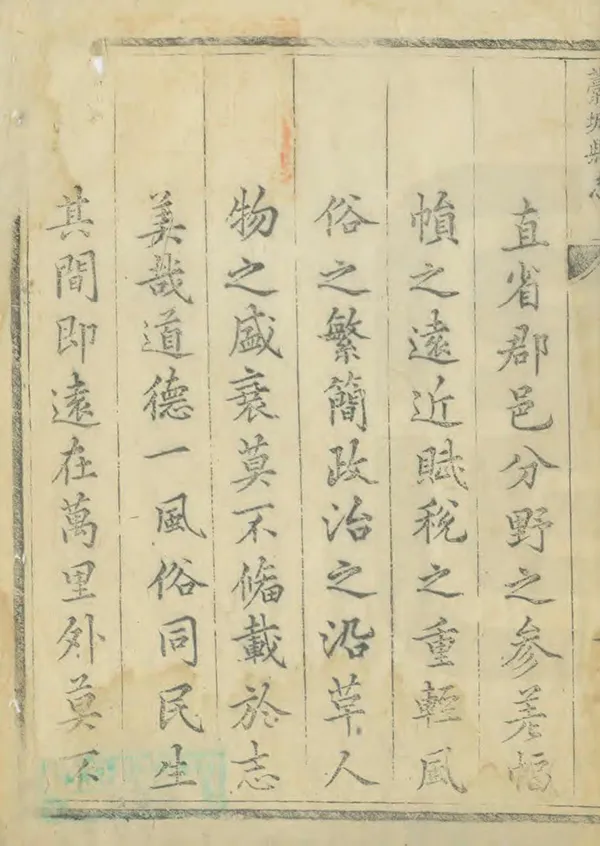 藁城縣志
直省郡邑分野之参差幅
幀之遠近賦稅之重輕風
俗之繁簡政治之沿革人
物之盛衰莫不俻載於志
美哉道德一風俗同民生
其間即遠在萬里外莫不